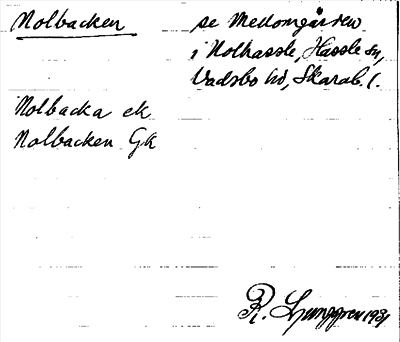 Nolbacken
se Mellomgården
i Nolhassle, Hassle sn,
Vadsbo hd, Skarab. l.
Nolbacka ek
Nolbacken Gk
R. Ljunggren 1931